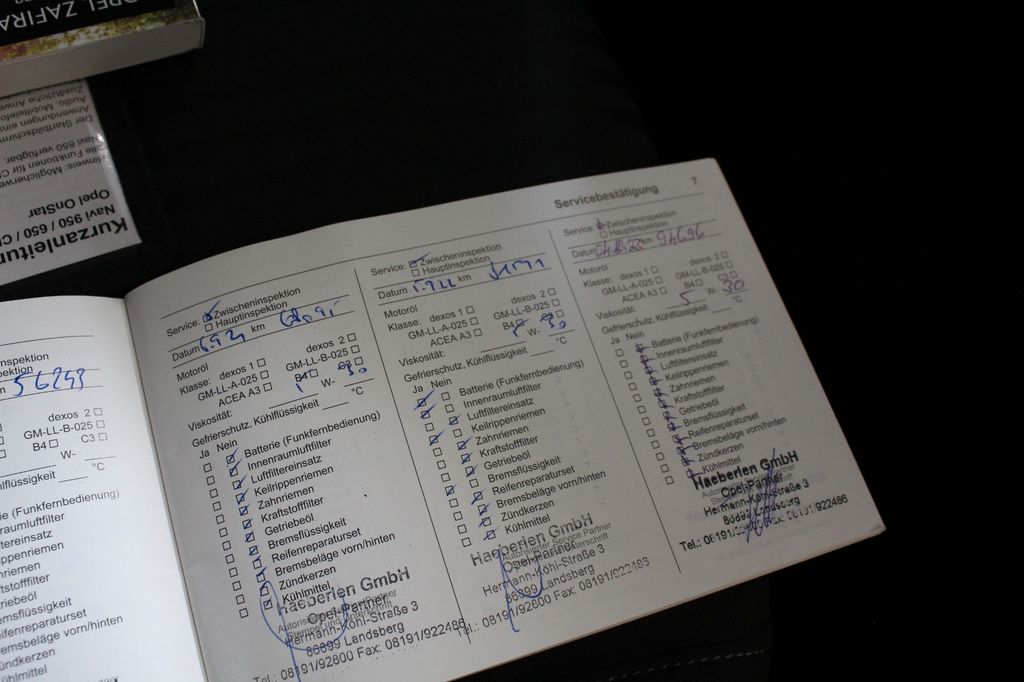 OPEL ZAFIRA
Kurzanleitun
Navi 950 / 650 / C
Opel OnStar
Navi 650 verfügbar.
Der Startbildschirm
Servicebestätigung 7
spektion
pektion
56243
dexos 2
GM-LL-B-025
B4 C3
W-
hlflüssigkeit °C
ie (Funkfernbedienung)
raumluftfilter
tereinsatz
ippenriemen
riemen
tstofffilter
riebeöl
msflüssigkeit
eifenreparaturset
emsbeläge vorn/hinten
ündkerzen
ühlmittel
Service: Zwischeninspektion
Hauptinspektion
Datum km
Motoröl
Klasse: dexos 1 dexos 2
GM-LL-A-025 GM-LL-B-025
ACEA A3 B4 C3
Viskosität: W- 30
Gefrierschutz, Kühlflüssigkeit °C
Ja Nein
Batterie (Funkfernbedienung)
Innenraumluftfilter
Luftfiltereinsatz
Keilrippenriemen
Zahnriemen
Kraftstofffilter
Getriebeöl
Bremsflüssigkeit
Reifenreparaturset
Bremsbeläge vorn/hinten
Zündkerzen
Kühlmittel
Haeberlen GmbH
Autorisierter Service Partner
Opel-Partner
Stempel und Unterschrift
Hermann-Köhl-Straße 3
86899 Landsberg
Tel.: 08191/92800 Fax: 08191/922486
Service: Zwischeninspektion
Hauptinspektion
Datum km
Motoröl
Klasse: dexos 1 dexos 2
GM-LL-A-025 GM-LL-B-025
ACEA A3 B4 C3
Viskosität: W- 30
Gefrierschutz, Kühlflüssigkeit °C
Ja Nein
Batterie (Funkfernbedienung)
Innenraumluftfilter
Luftfiltereinsatz
Keilrippenriemen
Zahnriemen
Kraftstofffilter
Getriebeöl
Bremsflüssigkeit
Reifenreparaturset
Bremsbeläge vorn/hinten
Zündkerzen
Kühlmittel
Haeberlen GmbH
Autorisierter Service Partner
Opel-Partner
Hermann-Köhl-Straße 3
86899 Landsberg
Tel.: 08191/92800 Fax: 08191/922486
Service: Zwischeninspektion
Hauptinspektion
Datum km 94696
Motoröl
Klasse: dexos 1 dexos 2
GM-LL-A-025 GM-LL-B-025
ACEA A3 B4 C3
Viskosität: 5 W- 30
Gefrierschutz, Kühlflüssigkeit °C
Ja Nein
Batterie (Funkfernbedienung)
Innenraumluftfilter
Luftfiltereinsatz
Keilrippenriemen
Zahnriemen
Kraftstofffilter
Getriebeöl
Bremsflüssigkeit
Reifenreparaturset
Bremsbeläge vorn/hinten
Zündkerzen
Kühlmittel
Haeberlen GmbH
Opel-Partner
Hermann-Köhl-Straße 3
86899 Landsberg
Tel.: 08191/ Fax: 08191/922486